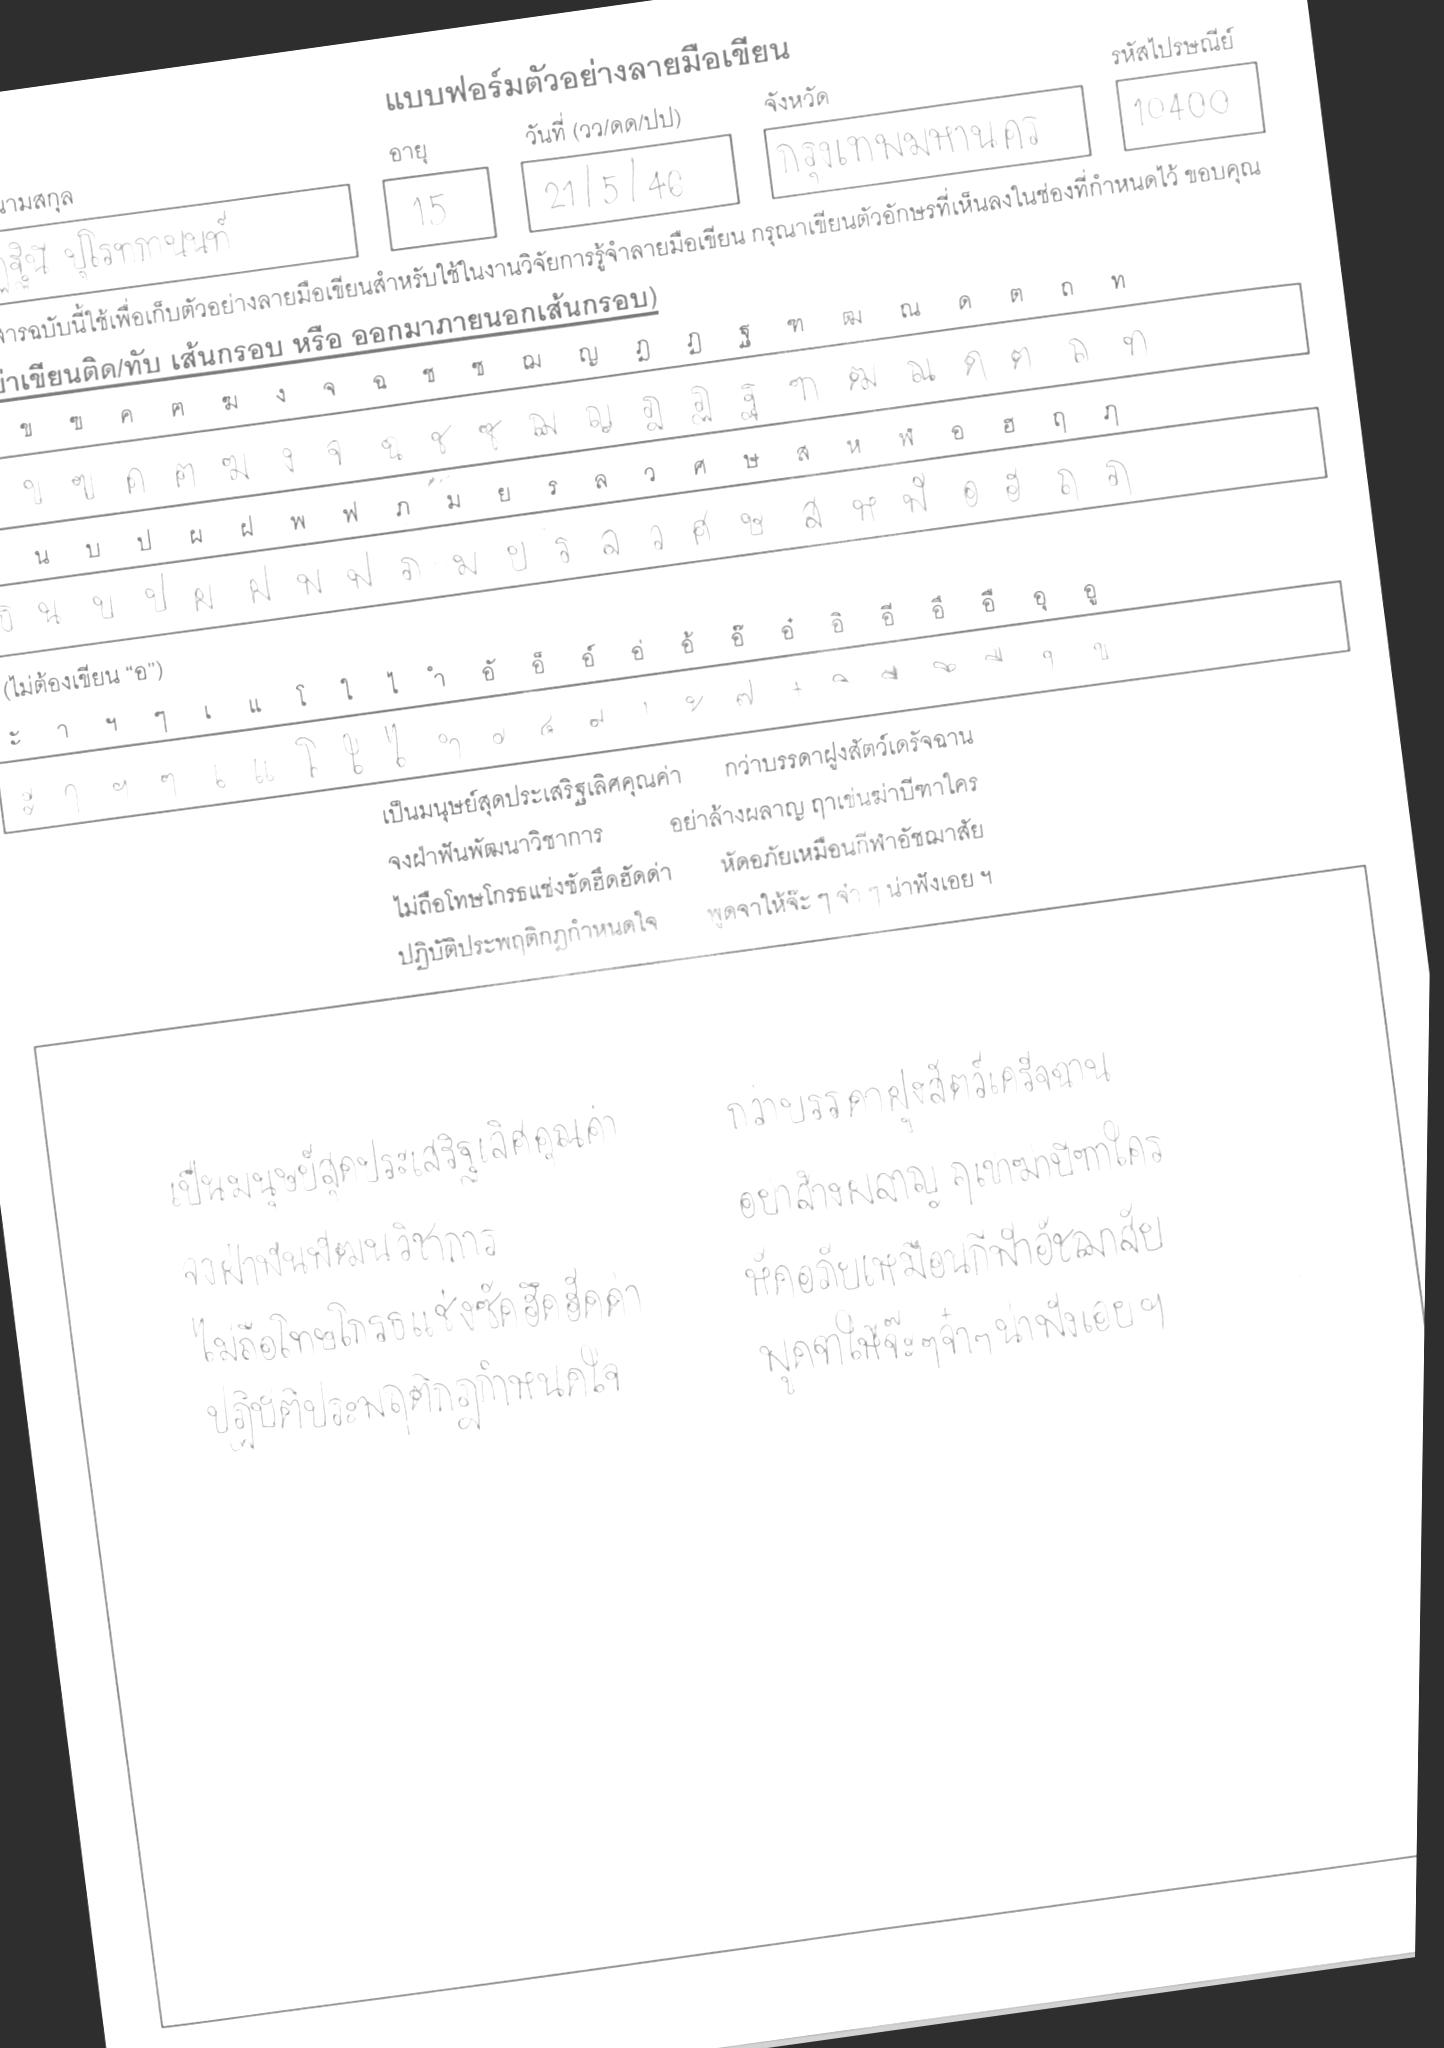 แบบฟอร์มตัวอย่างลายมือเขียน
นามสกุล อายุ วันที่ (วว/ดด/ปป) จังหวัด รหัสไปรษณีย์
15 21/5/46 กรุงเทพมหานคร 10400
สารฉบับนี้ใช้เพื่อเก็บตัวอย่างลายมือเขียนสำหรับใช้ในงานวิจัยการรู้จำลายมือเขียน กรุณาเขียนตัวอักษรที่เห็นลงในช่องที่กำหนดไว้ ขอบคุณ
ย่าเขียนติด/ทับ เส้นกรอบ หรือ ออกมาภายนอกเส้นกรอบ)
ข ฃ ค ฅ ฆ ง จ ฉ ช ซ ฌ ญ ฎ ฏ ฐ ฑ ฒ ณ ด ต ถ ท
ข ฃ ค ฅ ฆ ง จ ฉ ช ซ ฌ ญ ฎ ฏ ฐ ฑ ฒ ณ ด ต ถ ท
น บ ป ผ ฝ พ ฟ ภ ม ย ร ล ว ศ ษ ส ห ฬ อ ฮ ฤ ฦ
ธ น บ ป ผ ฝ พ ฟ ภ ม ย ร ล ว ศ ษ ส ห ฬ อ ฮ ฤ ฦ
(ไม่ต้องเขียน "อ")
ะ า ฯ ๆ เ แ โ ใ ไ ำ อั อ็ อ์ อ่ อ้ อ๊ อ๋ อิ อี อึ อื อุ อู
ะ า ฯ ๆ เ แ โ ใ ไ ำ ั ็ ์ ่ ้ ๊ ๋ ิ ี ึ ื ุ ู
เป็นมนุษย์สุดประเสริฐเลิศคุณค่า กว่าบรรดาฝูงสัตว์เดรัจฉาน
จงฝ่าฟันพัฒนาวิชาการ อย่าล้างผลาญ ฤาเข่นฆ่าบีฑาใคร
ไม่ถือโทษโกรธแช่งซัดฮึดฮัดด่า หัดอภัยเหมือนกีฬาอัชฌาสัย
ปฏิบัติประพฤติกฎกำหนดใจ พูดจาให้จ๊ะ ๆ จ๋า ๆ น่าฟังเอย ฯ
เป็นมนุษย์สุดประเสริฐเลิศคุณค่า กว่าบรรดาฝูงสัตว์เดรัจฉาน
จงฝ่าฟันพัฒนวิชาการ อยาล้างผลาญ ฤเขาฆ่าบีฑาใคร
ไม่ถือโทษโกรธแช่งซัดฮึดฮัดด่า หัดอภัยเหมือนกีฬาอัชฌาสัย
ปฏิบัติประพฤติกฎกำหนดใจ พูดจาให้จ๊ะๆจ๋าๆ น่าฟังเอยฯ